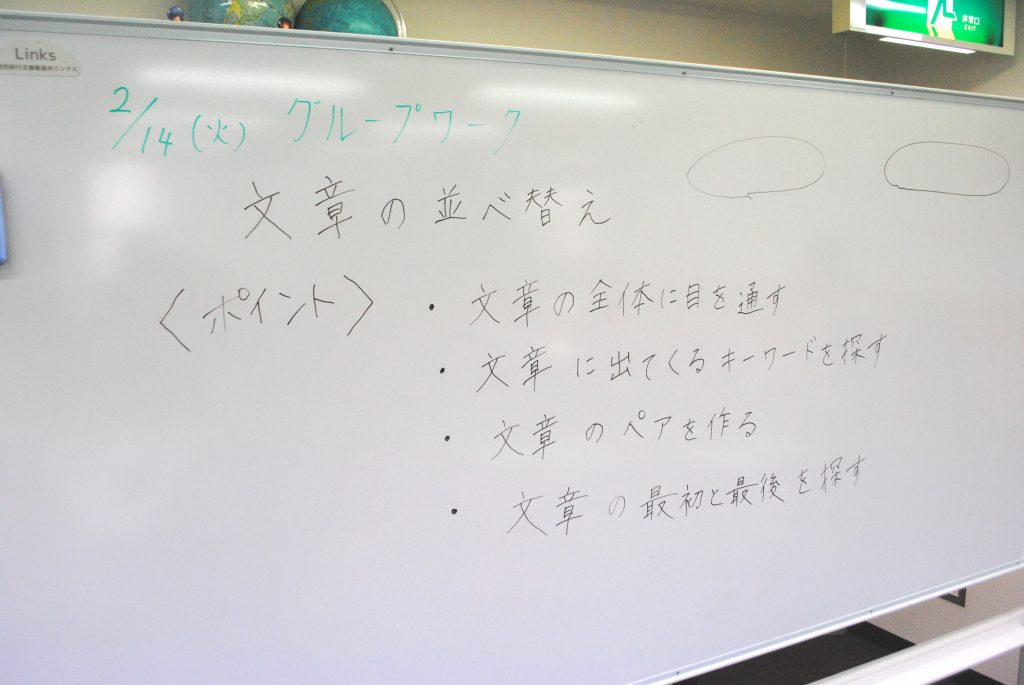 非常口
EXIT
Links
2/14(火) グループワーク
文章の並べ替え
〈ポイント〉
・文章の全体に目を通す
・文章に出てくるキーワードを探す
・文章のペアを作る
・文章の最初と最後を探す